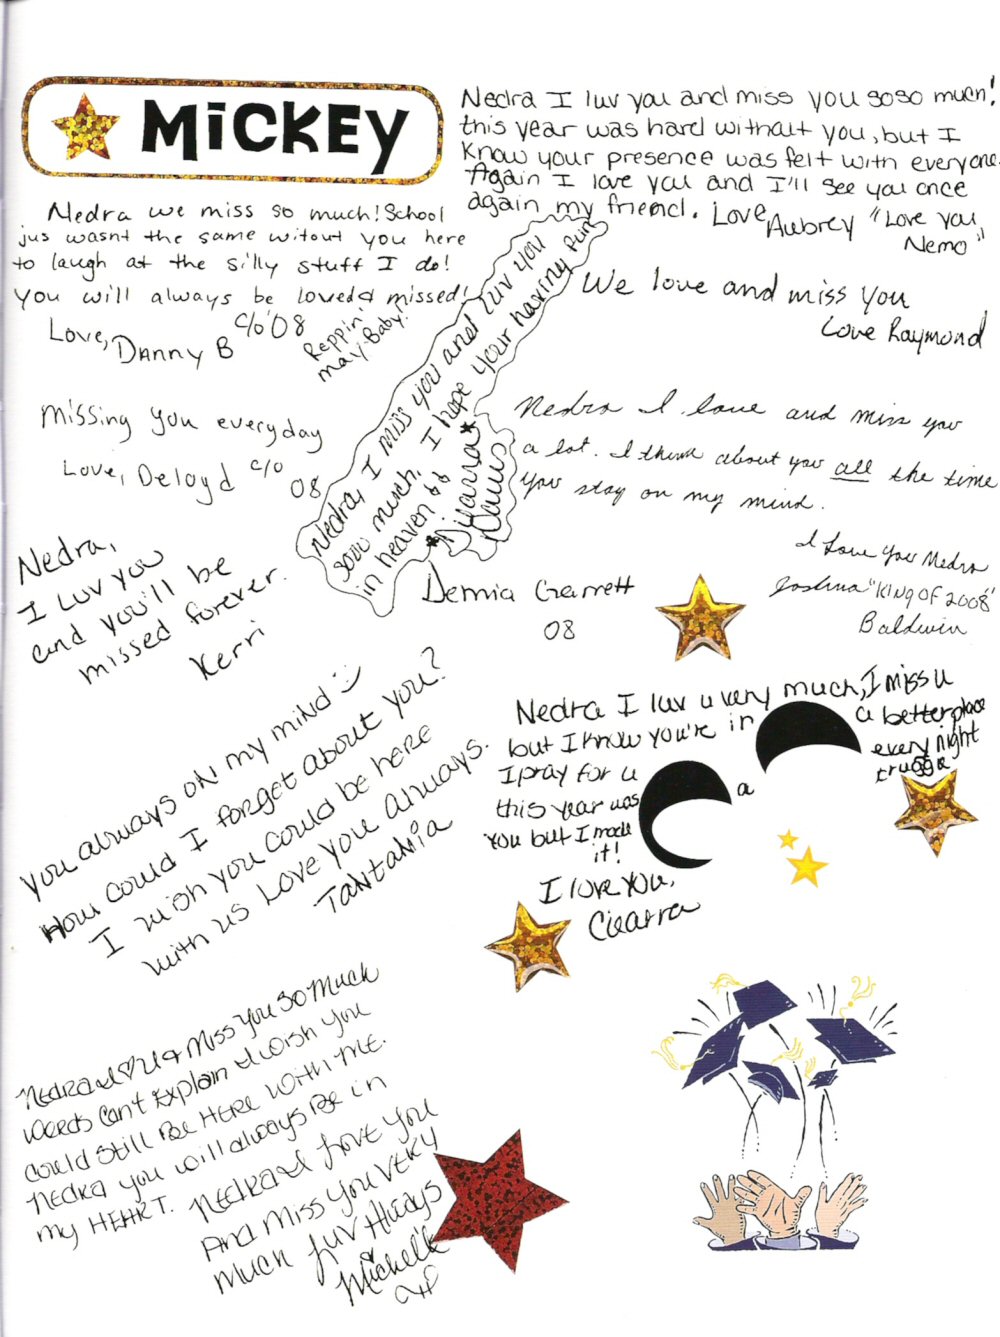 MiCKEY
Nedra I luv you and miss you soso much!
this year was hard without you, but I
know your presence was felt with everyone.
Again I love you and I'll see you once
again my friend. Love, Aubrey "Love you
Nemo"
Nedra we miss so much! School
jus wasnt the same witout you here
to laugh at the silly stuff I do!
you will always be loved & missed!
Love, Danny B c/o '08
Reppin'
may-Baby!
We love and miss you
Love Raymond
missing you everyday
Love, Deloyd c/o
08
Nedra, I miss you and luv you
sooo much, I hope your having fun
in heaven
Davis
Demia Garrett
08
Nedra I love and miss you
a lot. I think about you all the time
you stay on my mind.
I Love you Nedra
Joshua "KING OF 2008"
Baldwin
Nedra,
I Luv you
and you'll be
missed forever.
Kerri
you always on my mind
How could I forget about you?
I wish you could be here
with us Love you always.
TaNTaNia
Nedra I luv u very much, I miss u
but I know you're in a better place
I pray for u every night
this year was a truggle
you but I made
it!
I love you,
Ciearra
Nedra I ♡ U & Miss you So Much
Words Can't Explain I wish you
could still Be HERE With ME.
Nedra you will always Be in
my HEART. Nedra I Love you
And Miss you VERY
Much Luv Always
Michelle